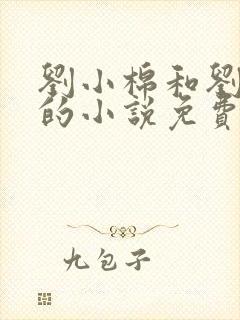 劉小棉和劉
的小說免費
九包子